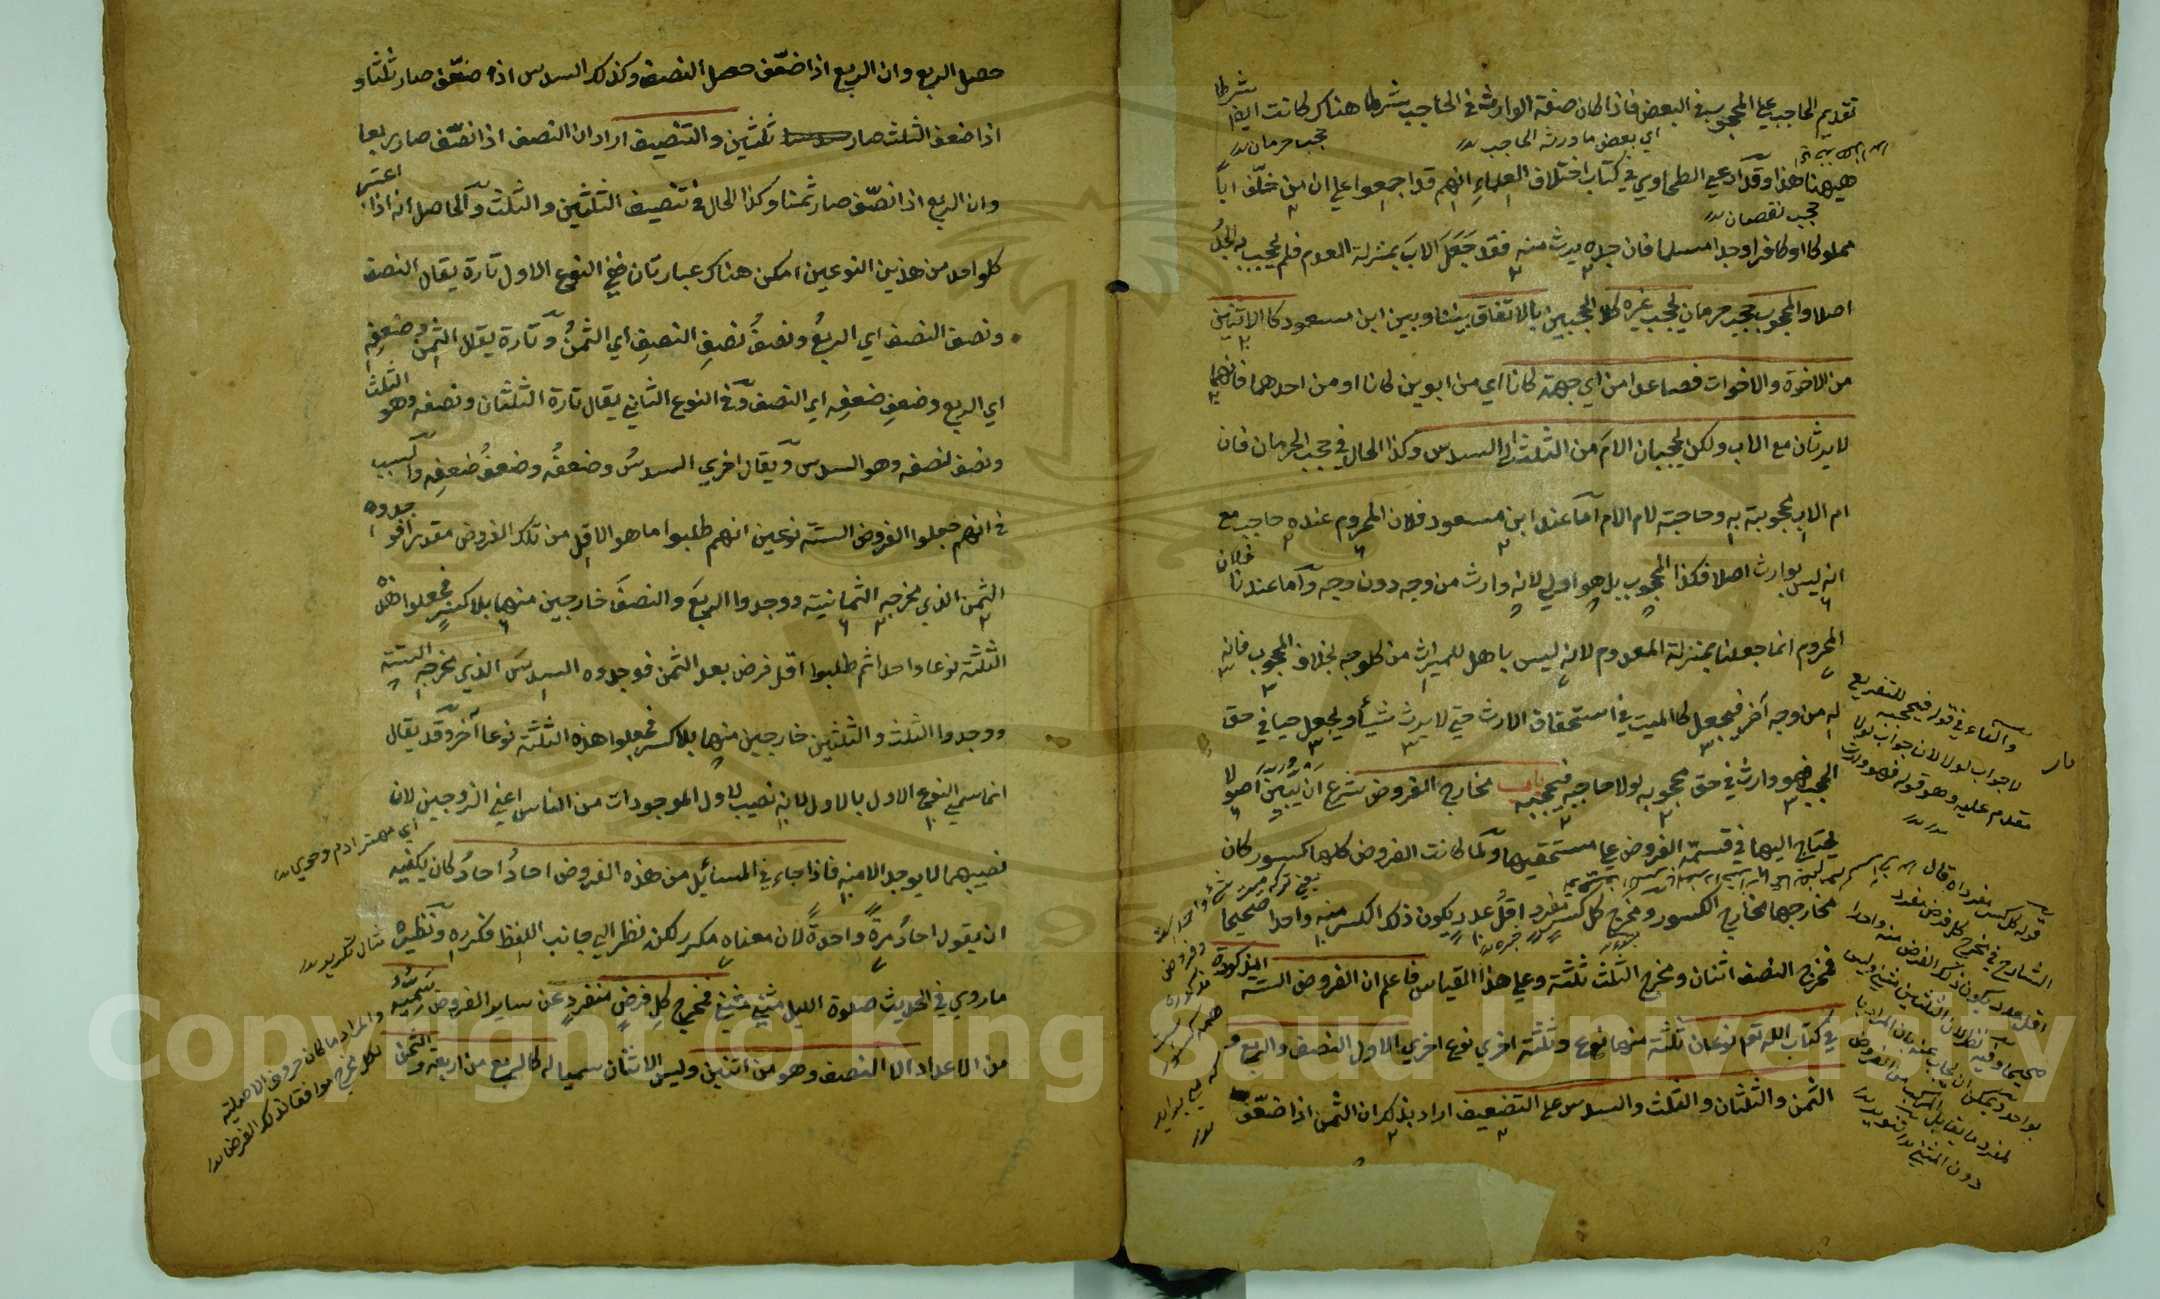 تقديم الحاجب علي المحجوب في البعض فاذا كان صفة الوارثة في الحاجب شرطا هناك كانت ايضا شرطا
اي بعض ما ورثه الحاجب
حجب حرمان
هيهنا هذا وقد ادعي الطحاوي في كتاب اختلاف العلماء انهم قد اجمعوا علي ان من خلّف ابا
حجب نقصان
مملوكا او كافرا وجدا مسلما فان جده يرث منه فقد جعل الاب بمنزلة العدم فلم يحجب به الجد
اصلا والمحجوب حجب حرمان يحجب غيره كلا الحجبين بالاتفاق بيننا وبين ابن مسعود كالاثنين
من الاخوة والاخوات فصاعدا من اي جهة كانا اي من ابوين كانا او من احدهما فانهما
لا يرثان مع الاب ولكن يحجبان الام من الثلث الي السدس وكذا الحال في حجب الحرمان فان
ام الاب محجوبة به وحاجبة لام الام اما عند ابن مسعود فلان المحروم عنده حاجب مع
انه ليس بوارث اصلا فكذا المحجوب بل هو اولي لانه وارث من وجه دون وجه واما عندنا فلان
المحروم انما جعلنا بمنزلة المعدوم لانه ليس باهل للميراث من كل وجه بخلاف المحجوب فانه
له من وجه آخر فيجعل كالميت في استحقاق الارث حتي لا يرث شيأ ويجعل حيا في حق
الحجب فهو وارث في حق محجوبه ولا حاجبه فيحجبه باب مخارج الفروض شرع ان يبين اصولا
يحتاج اليها في قسمة الفروض علي مستحقيها ولما كانت الفروض كلها كسور كان
مخارجها مخارج الكسور ومخرج كل كسر مفرد اقل عدد يكون ذلك الكسر منه واحدا صحيحا
فمخرج النصف اثنان ومخرج الثلث ثلثة وعلي هذا القياس فاعلم ان الفروض الستة المذكورة
في كتاب الله تع نوعان ثلثة منها نوع وثلثة اخري نوع اخري الاول النصف والربع و
الثمن والثلثان والثلث والسدس علي التضعيف اراد بذلك ان الثمن اذا ضعّف
والفاء في قوله فيحجبه للتفريع
لا جواب لولا لان جواب لولا
مقدم عليه وهو قوله فهو وارث
حصل الربع وان الربع اذا ضعّف حصل النصف وكذلك السدس اذا ضعّف صار ثلثا و
اذا ضعف الثلث صار ثلثين والتنصيف اراد ان النصف اذا نصّف صار ربعا
وان الربع اذا نصّف صار ثمنا وكذا الحال في تنصيف الثلثين والثلث والحاصل انه اذا اعتبر
كل واحد من هذين النوعين امكن هناك عبارتان ففي النوع الاول تارة يقال النصف
ونصف النصف اي الربع ونصف نصف النصف اي الثمن وتارة يقال الثمن وضعفه
اي الربع وضعف ضعفه اي النصف وفي النوع الثاني يقال تارة الثلثان ونصفه وهو الثلث
ونصف نصفه وهو السدس ويقال اخري السدس وضعفه وضعف ضعفه والسبب
في انهم جعلوا الفروض الستة نوعين انهم طلبوا ما هو الاقل من تلك الفروض مقدرا فوجدوه
الثمن الذي مخرجه الثمانية ووجدوا الربع والنصف خارجين منها بلا كسر فجعلوا هذه
الثلثة نوعا واحدا ثم طلبوا اقل فرض بعد الثمن فوجدوه السدس الذي مخرجه الستة
ووجدوا الثلث والثلثين خارجين منها بلا كسر فجعلوا هذه الثلثة نوعا آخر وقد يقال
انما سمي النوع الاول بالاول لانه نصيب لاول الموجودات من الناس اعني الزوجين لان
نصيبهما لا يوجد الا منه فاذا جاء في المسائل من هذه الفروض احاد احاد كان يكفيه
ان يقول احاد مرة واحدة لان معناه مكرر لكن نظر الي جانب اللفظ فكرره ونظيره
مثال تكرير
ما روي في الحديث صلوة الليل مثني مثني فمخرج كل فرض منفرد عن ساير الفروض سميه
من الاعداد الا النصف وهو من اثنين وليس الاثنان سميا له كالربع من اربعة والثمن
والمراد ما كان حروف الاصلية
لكل مخرج موافقا لذلك الفرض
Copyright © King Saud University